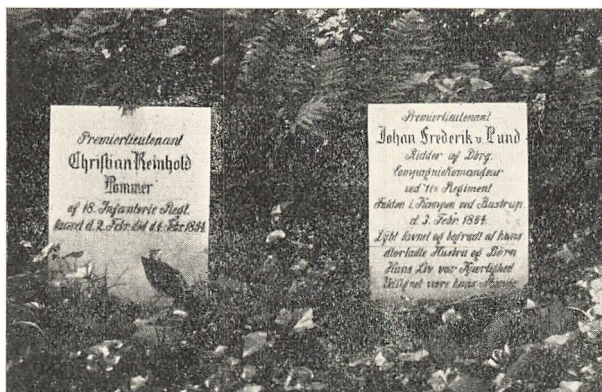 Premierlieutenant
Christian Reinhold
Pommer
af 18. Infanterie Regt.
saaret d. 2. Febr. død d. 4. Febr. 1864.
Premierlieutenant
Johan Frederik v. Lund
Ridder af Dbrg.
Compagniekomandeur
ved 11te Regiment
Falden i Kampen ved Bustrup
d. 3. Febr. 1864.
Dybt savnet og begrædt af hans
efterladte Hustru og Børn
Hans Liv var Kjærlighed
Velsignet være hans Minde